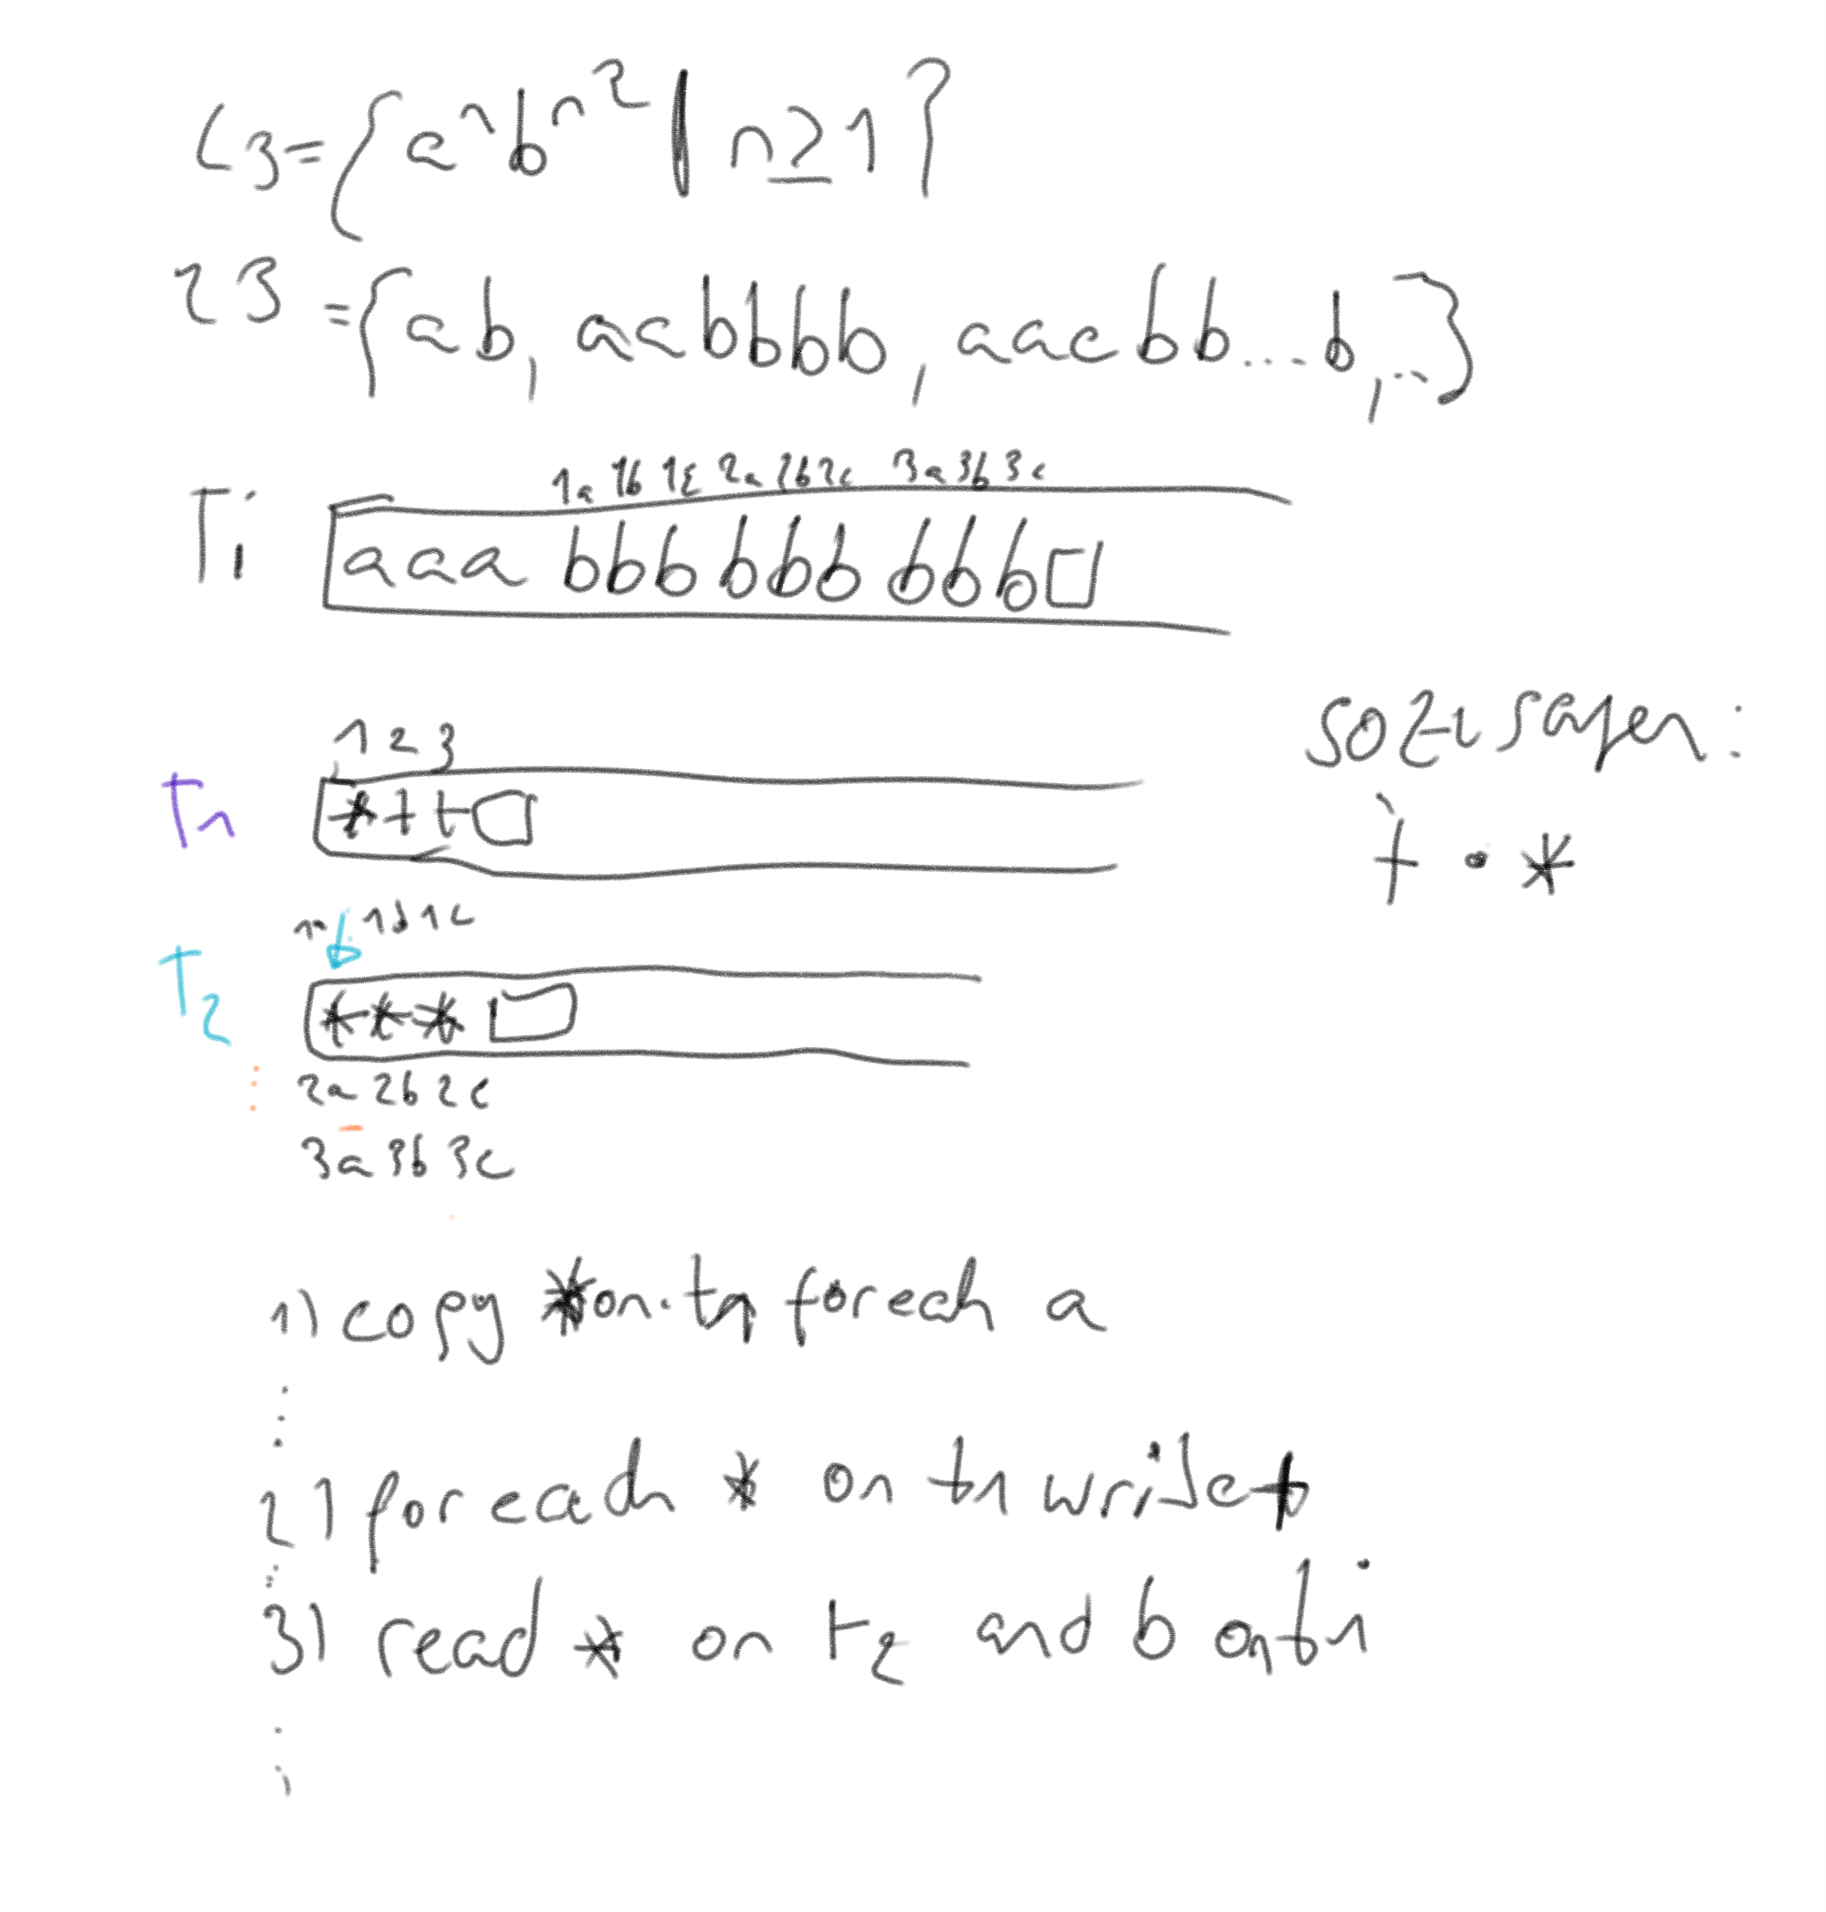 L3={aⁿbⁿ² | n≥1}
L3={ab, aabbbb, aaabb...b,..}
1a 1b 1c 2a 2b 2c 3a 3b 3c
Ti aaa bbb bbb bbb□
1 2 3
sozusagen:
T1 *++□
+ · *
1b 1c
T2 ***□
2a 2b 2c
3a 3b 3c
1) copy * on t1 foreach a
2) foreach * on t1 write +
3) read * on t2 and b on ti